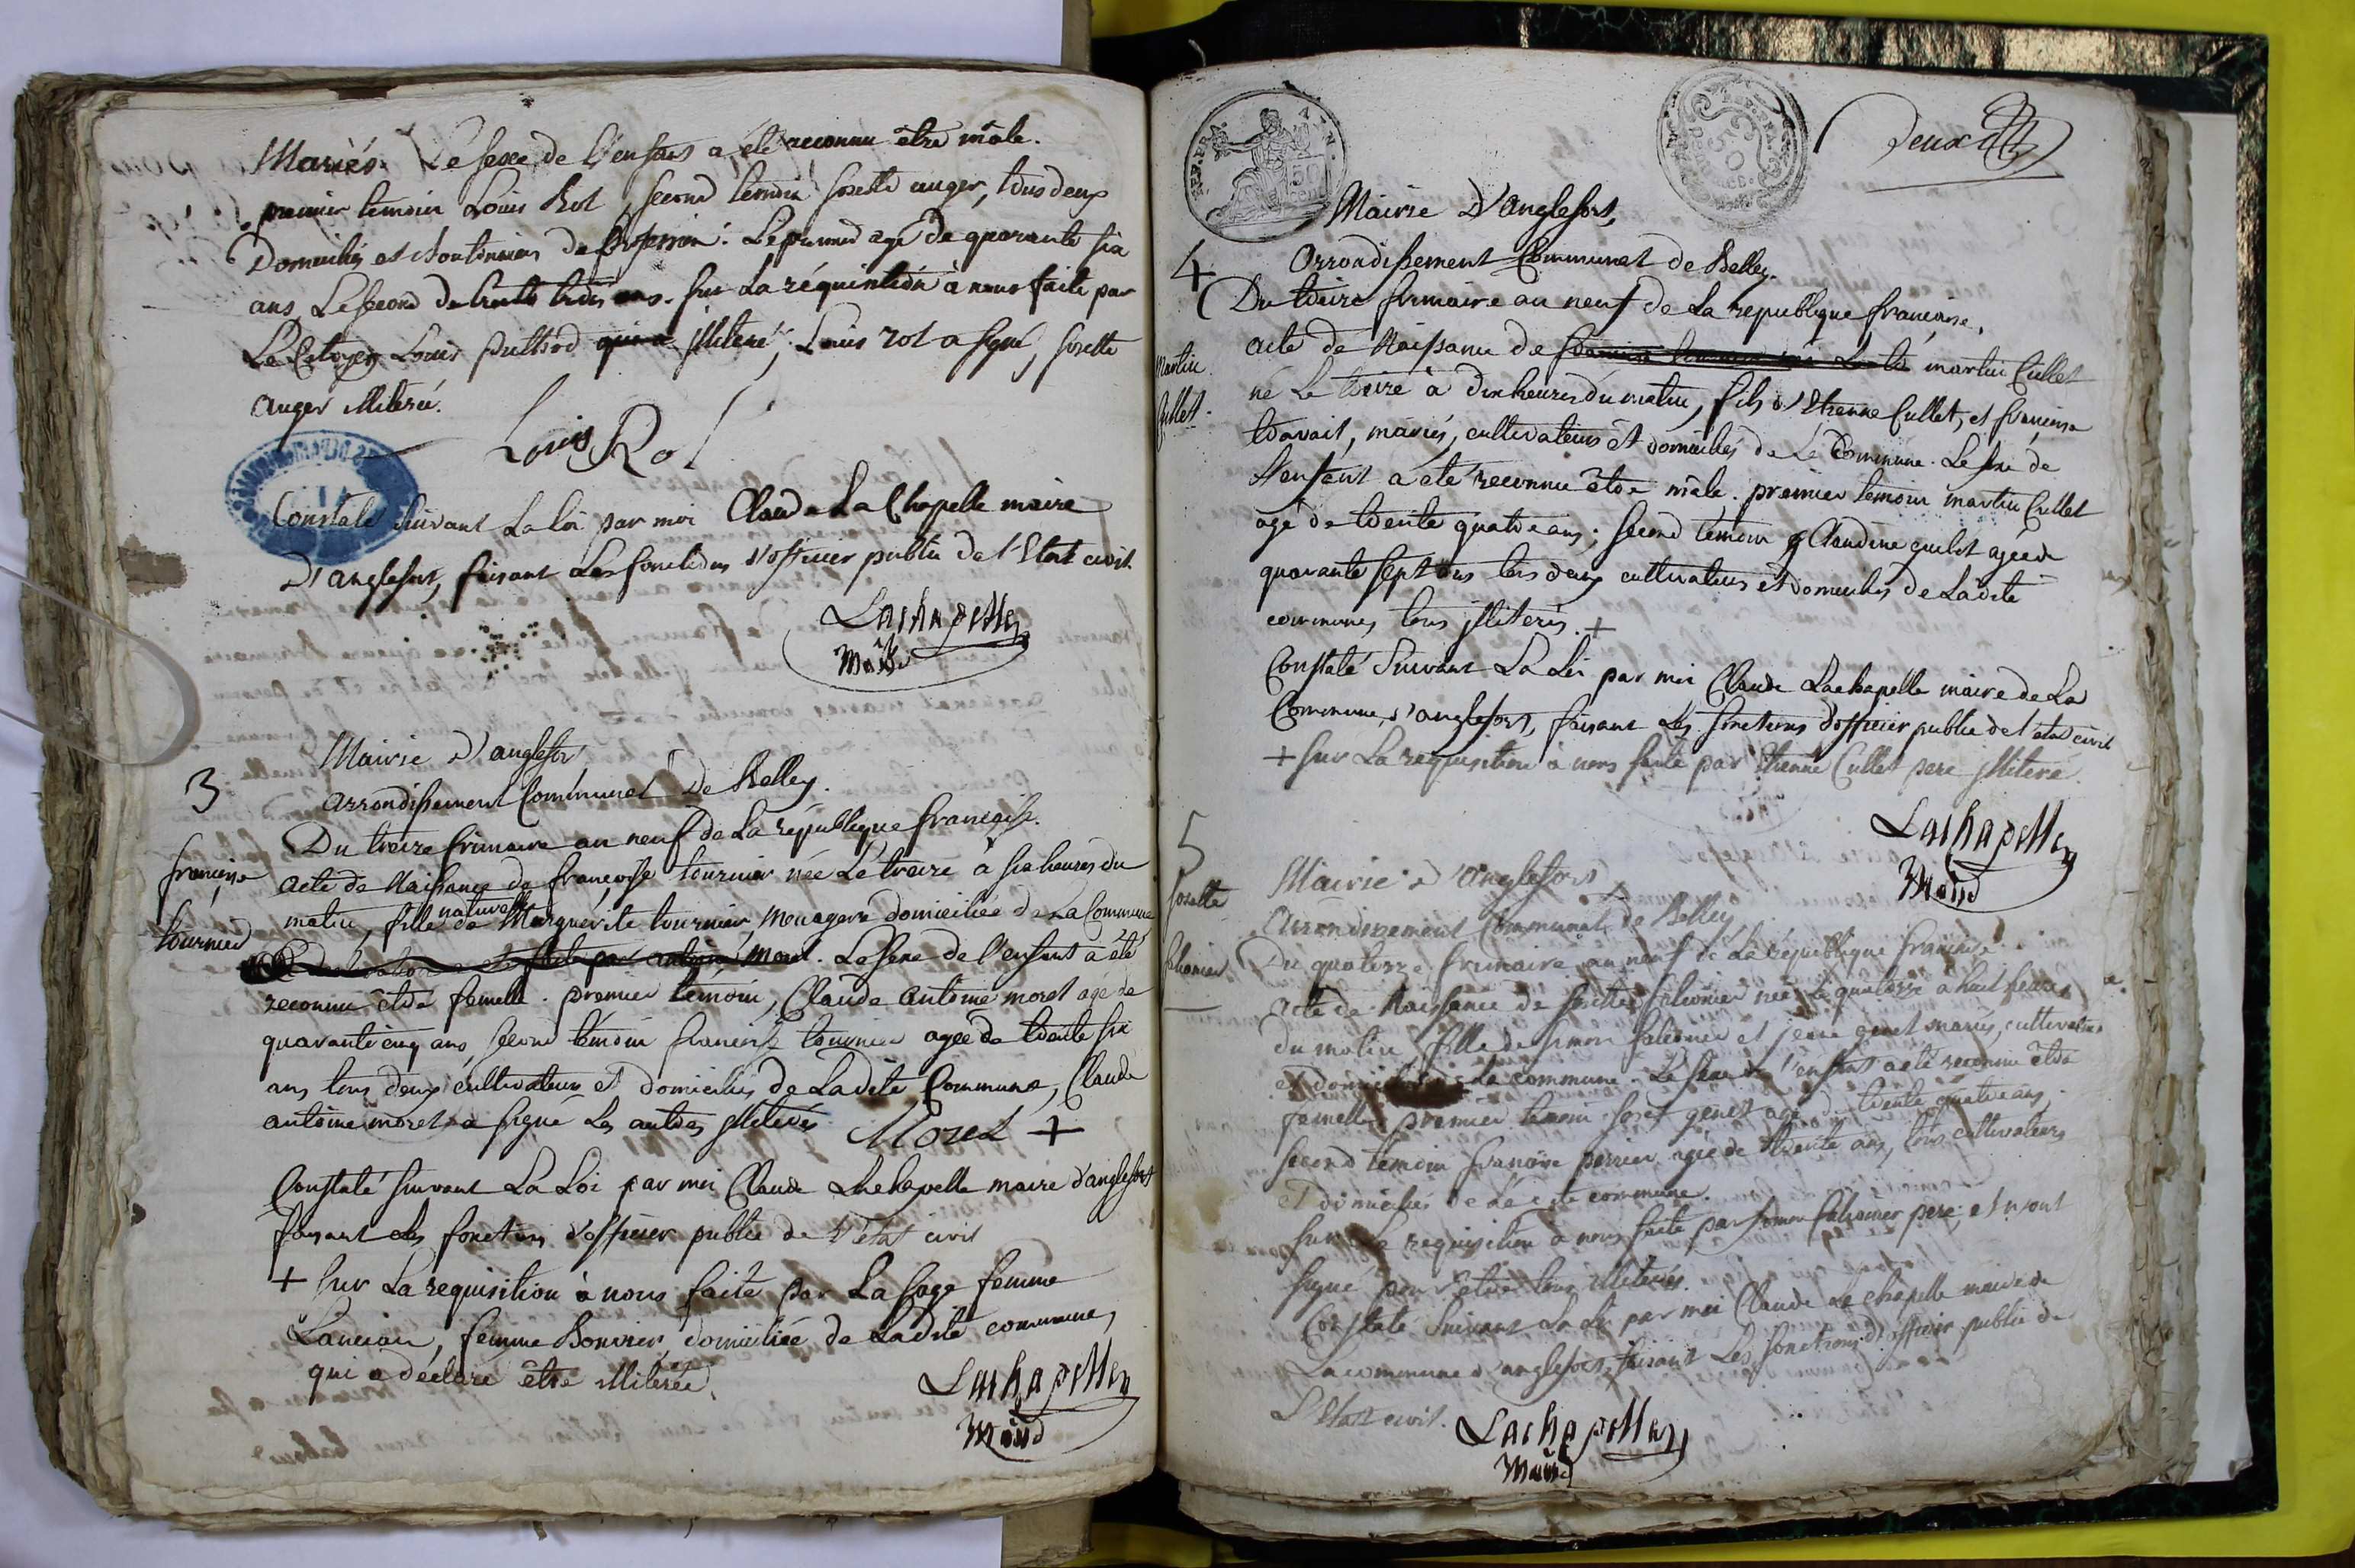 Mariés. Le sexe de l'enfant a été reconnu être mâle.
premier temoin Louis Rol, second temoin Josette auger, tous deux
Domiciliés et de . Le premier agé de quarante six
ans, Le second de trente trois ans. sur La réquisition à nous faite par
Le Citoyen Louis illiteré; Louis rol a signé, Josette
auger illiterée.
Louis Rol
Constaté suivant La loi par moi Claude La Chapelle maire
D'anglefort, faisant Les fonctions d'officier public de l'Etat civil.
Lachapelle
Maire
3
Mairie d'anglefort
arrondissement Communal De Belley.
Du treize frimaire an neuf de La république française.
françoise
tournier
acte de Naissance de françoise tournier née Le treize à six heures du
matin, fille naturelle de Marguérite tournier, menagere domiciliée de La Commune
Le sexe de l'enfant a été
reconnu être femelle. premier temoin, Claude antoine moret agé de
quarante cinq ans, second témoin françoise tournier agée de trente six
ans tous deux cultivateurs et domiciliés de Ladite Commune, Claude
antoine moret a signé Les autres illiterés. Moret +
Constaté suivant La Loi par moi Claude Lachapelle maire d'anglefort
faisant les fonctions d'officier public de l'état civil
+ sur La requisition à nous faite par La sage femme
Lancian, femme Bonvier, domiciliée de Ladite commune,
qui a déclaré être illiterée.
Lachapelle
Maire
REP. FRA.
50
deux
Mairie D'anglefort,
4
Arrondissement Communal de Belley.
Du treize frimaire an neuf de La republique française.
Martin
Cullet.
acte de Naissance de martin Cullet
né Le treize à dix heures du matin, fils d'Etienne Cullet, et françoise
travail, mariés, cultivateurs et domiciliés de La Commune. Le sexe de
l'enfant a été reconnu être mâle. premier temoin martin Cullet
agé de trente quatre ans; second temoin Claudine agée de
quarante sept ans tous deux cultivateurs et domiciliés de Ladite
commune, tous illiterés. +
Constaté suivant La Loi par moi Claude Lachapelle maire de La
Commune, d'anglefort, faisant Les fonctions d'officier public de l'etat civil
+ sur La requisition à nous faite par Etienne Cullet pere illiteré.
Lachapelle
Maire
5
Mairie d'anglefort
Arrondissement Communal de Belley
Josette
falconier
Du quatorze frimaire an neuf de La république française
acte de Naissance de Josette falconier née Le quatorze à huit heures
du matin, fille de simon falconier et genet mariés, cultivateurs
et domiciliés de La commune. Le sexe de l'enfant a été reconnu être
femelle. premier temoin genet agé de trente quatre ans,
second temoin françoise perrier agée de trente ans, tous cultivateurs
et domiciliés de La dite commune.
sur La requisition à nous faite par simon falconier pere, et n'ont
signé pour être tous illiterés.
Constaté suivant La Loi par moi Claude Lachapelle maire de
La commune d'anglefort, faisant Les fonctions d'officier public de
L'Etat civil.
Lachapelle
Maire